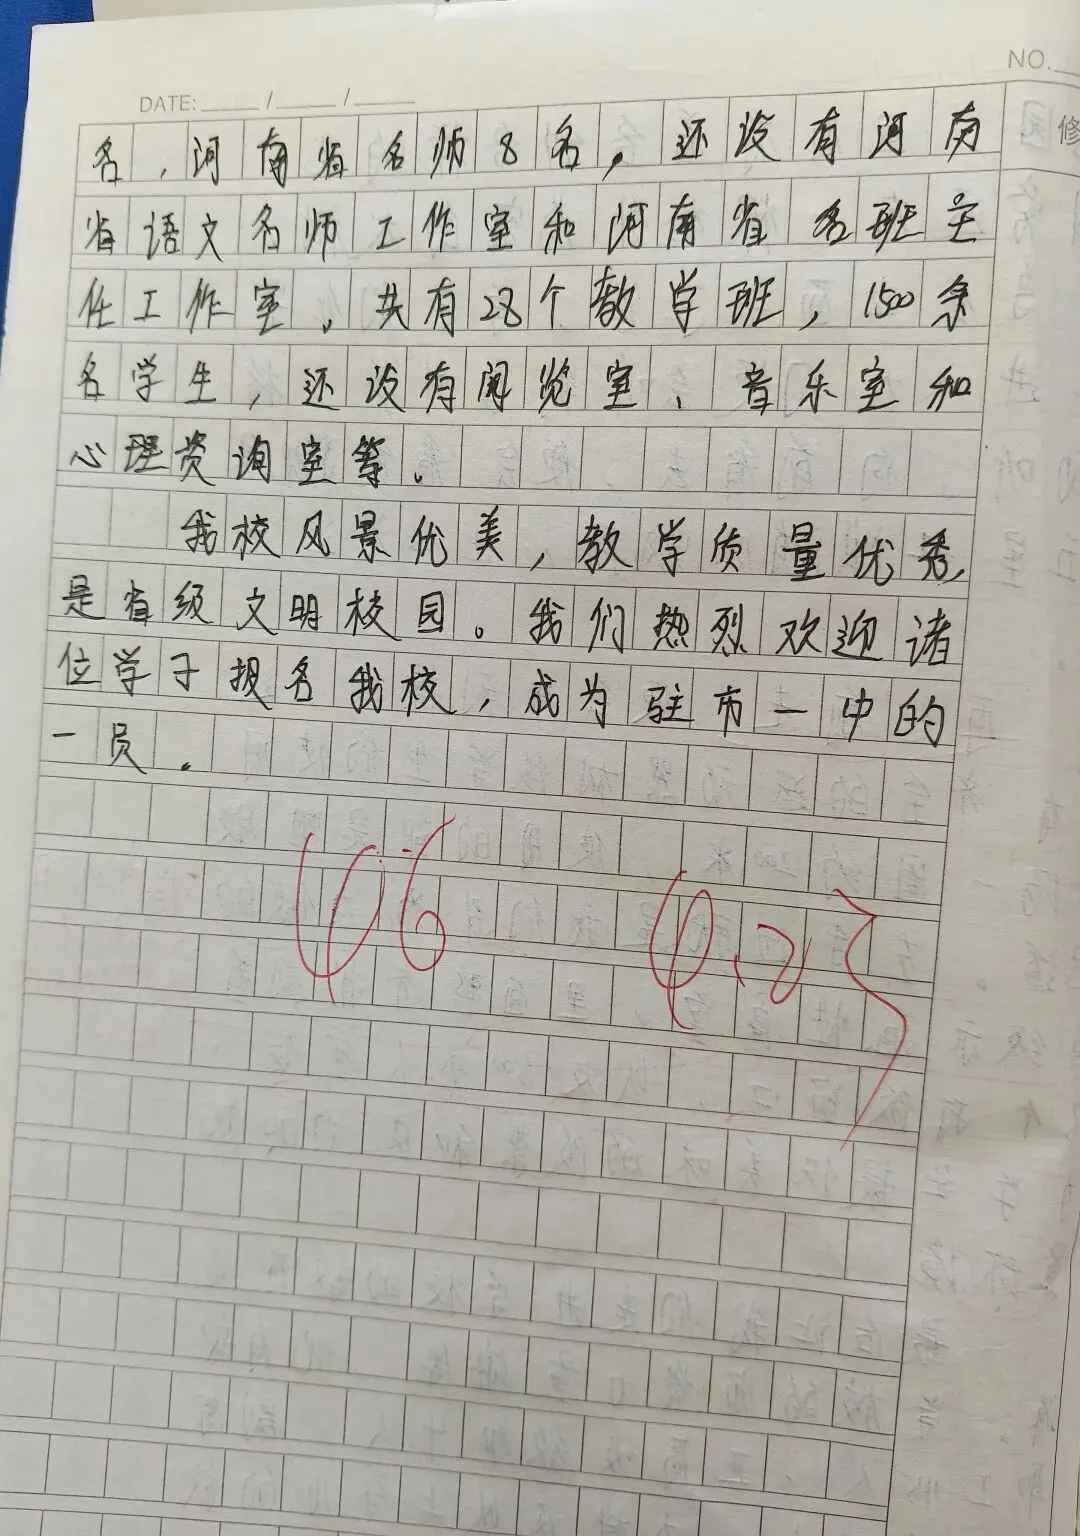 NO.
DATE: / /
修
名，河南省名师8名，还设有河南
省语文名师工作室和河南省名班主
任工作室。共有28个教学班，1500余
名学生，还设有阅览室、音乐室和
心理资询室等。
我校风景优美，教学质量优秀，
是省级文明校园。我们热烈欢迎诸
位学子报名我校，成为驻市一中的
一员。